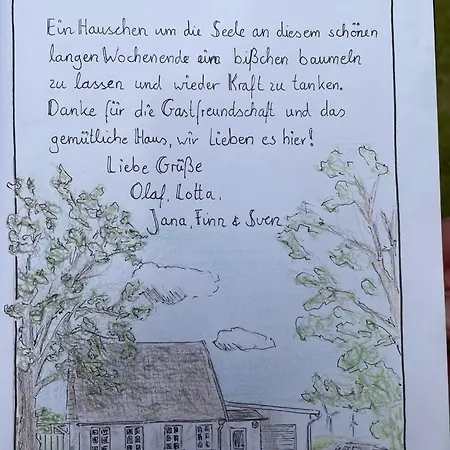 Ein Häuschen um die Seele an diesem schönen
langen Wochenende ein bißchen baumeln
zu lassen und wieder Kraft zu tanken.
Danke für die Gastfreundschaft und das
gemütliche Haus, wir lieben es hier!
Liebe Grüße
Olaf, Lotta,
Jana, Finn & Sven